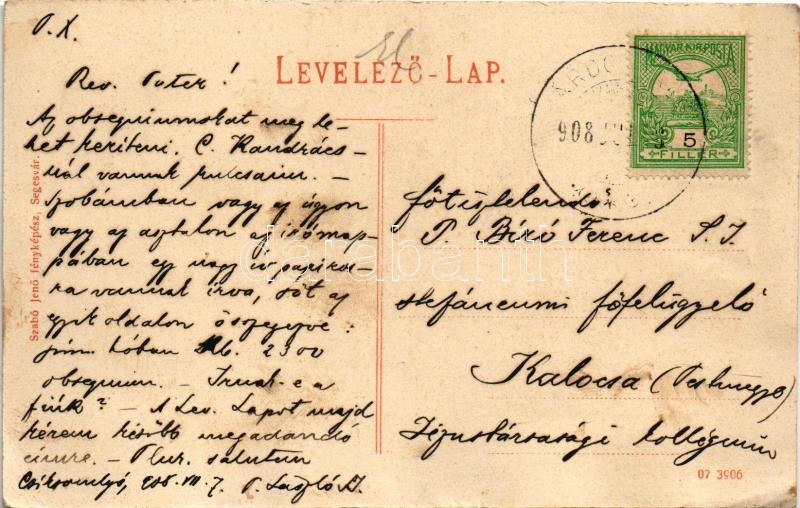 P. X.
LEVELEZŐ-LAP.
Rev. Pater!
Az obsequiumokat meg le-
het keríteni. C. Kandrács-
nál vannak kulcsaim. –
Szobámban vagy az ágyon
vagy az asztalon az írómap-
pában egy nagy ív papiros-
ra vannak írva, sőt az
egyik oldalon összegezve:
jún. hóban 2300
obsequium. – Irnak-e a
fiúk? – A Lev. Lapot majd
kérem később megadandó
címre. – Plur. salutem
Csiksomlyó, 908. VII. 7. P. László
Szabó Jenő fényképész, Segesvár.
MAGYAR KIR. POSTA
5
FILLER
908
főtisztelendő
P. Bíró Ferenc S. J.
stefáneumi főfelügyelő
Kalocsa (Pestmegye)
Jézustársasági kollégium
07 3906
darabanth